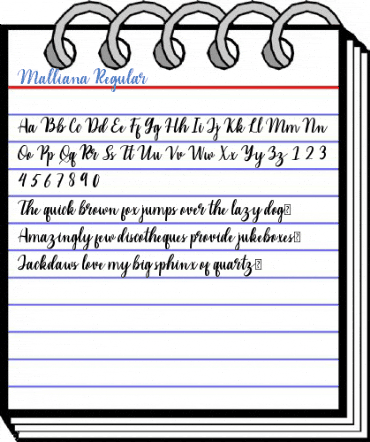 Malliana Regular
Aa Bb Cc Dd Ee Ff Gg Hh Ii Jj Kk Ll Mm Nn
Oo Pp Qq Rr Ss Tt Uu Vv Ww Xx Yy Zz 1 2 3
4 5 6 7 8 9 0
The quick brown fox jumps over the lazy dog□
Amazingly few discotheques provide jukeboxes□
Jackdaws love my big sphinx of quartz□